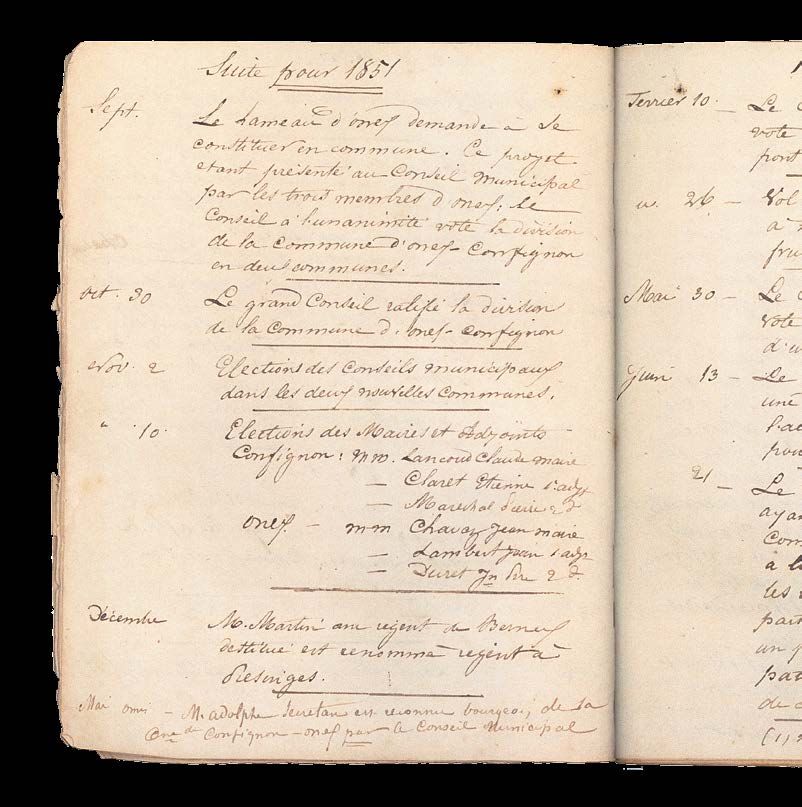 Suite pour 1851
Sept. Le hameau d'onex demande à se
constituer en commune. Ce projet
etant présenté au Conseil municipal
par les trois membres d'onex; Le
Conseil à l'unanimité vote la division
de la Commune d'onex-Confignon
en deux communes.
Oct. 30 Le grand Conseil ratifie la division
de la Commune d'onex-Confignon
Nov. 2 Elections des Conseils municipaux
dans les deux nouvelles communes.
" 10. Elections des Maires et Adjoints
Confignon: MM. Lancoud Claude maire
— Claret Etienne 1. adjt
— Marechal 2 d.
onex — MM Chavaz Jean maire
— Lambert Jean 1 adjt
— Duret Jn Pre 2 d.
Décembre M. Martin anc régent de Bernex
destitué est renommé régent à
Presinges.
Mai omis — M. adolphe Secretan est reconnu bourgeois de la
Cne de Confignon-onex par le Conseil Municipal
1
Fevrier 10. — Le
vote
pont
" 26 — Vol
à
frui
Mai 30 — Le
vote
d'u
Juin 13 — Le
une
l'ac
pou
21 — Le
ayan
Com
à l
les
part
un p
par
de
(1)